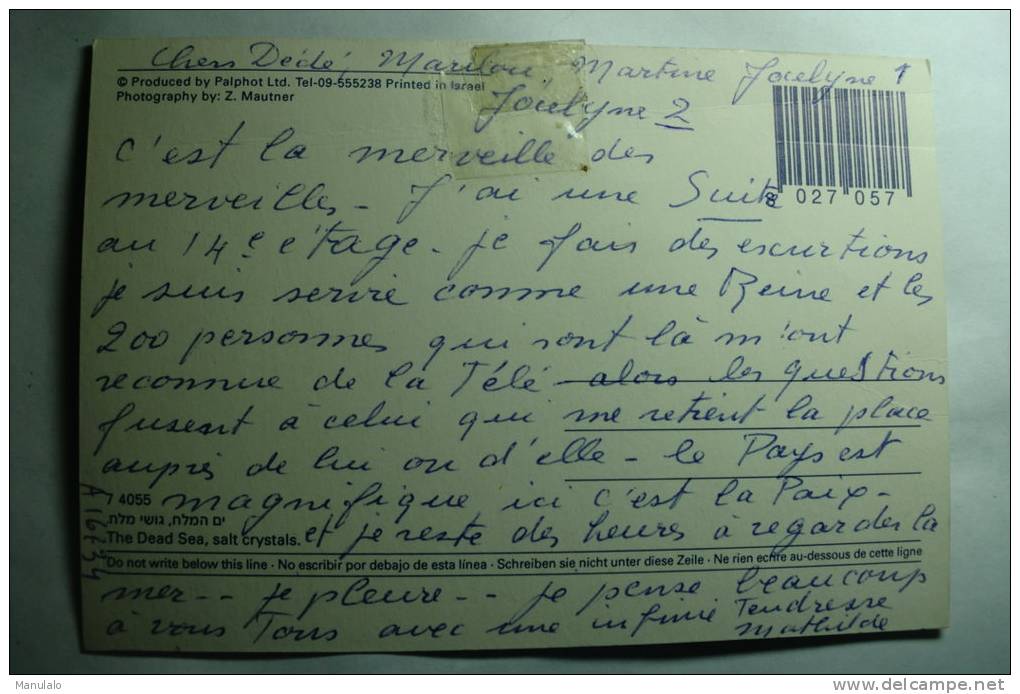 Chers Dédé, Marilou, Martine Jocelyne 1
© Produced by Palphot Ltd. Tel-09-555238 Printed in Israel
Photography by: Z. Mautner
Jocelyne 2
c'est la merveille des
merveilles - J'ai une Suite
8 027 057
au 14e étage - je fais des escurtions
je suis servie comme une Reine et les
200 personnes qui sont là m'ont
reconnue de la Télé - alors les questions
fusent à celui qui me retient la place
auprès de lui ou d'elle - le Pays est
74055 magnifique ici c'est la Paix -
ים המלח, גושי מלח.
The Dead Sea, salt crystals. et je reste des heures à regarder la
Do not write below this line · No escribir por debajo de esta línea · Schreiben sie nicht unter diese Zeile · Ne rien ecrire au-dessous de cette ligne
mer -- je pleure -- je pense beaucoup
à vous Tous avec une infinie Tendresse
Mathilde
Manulalo
delcampe.net